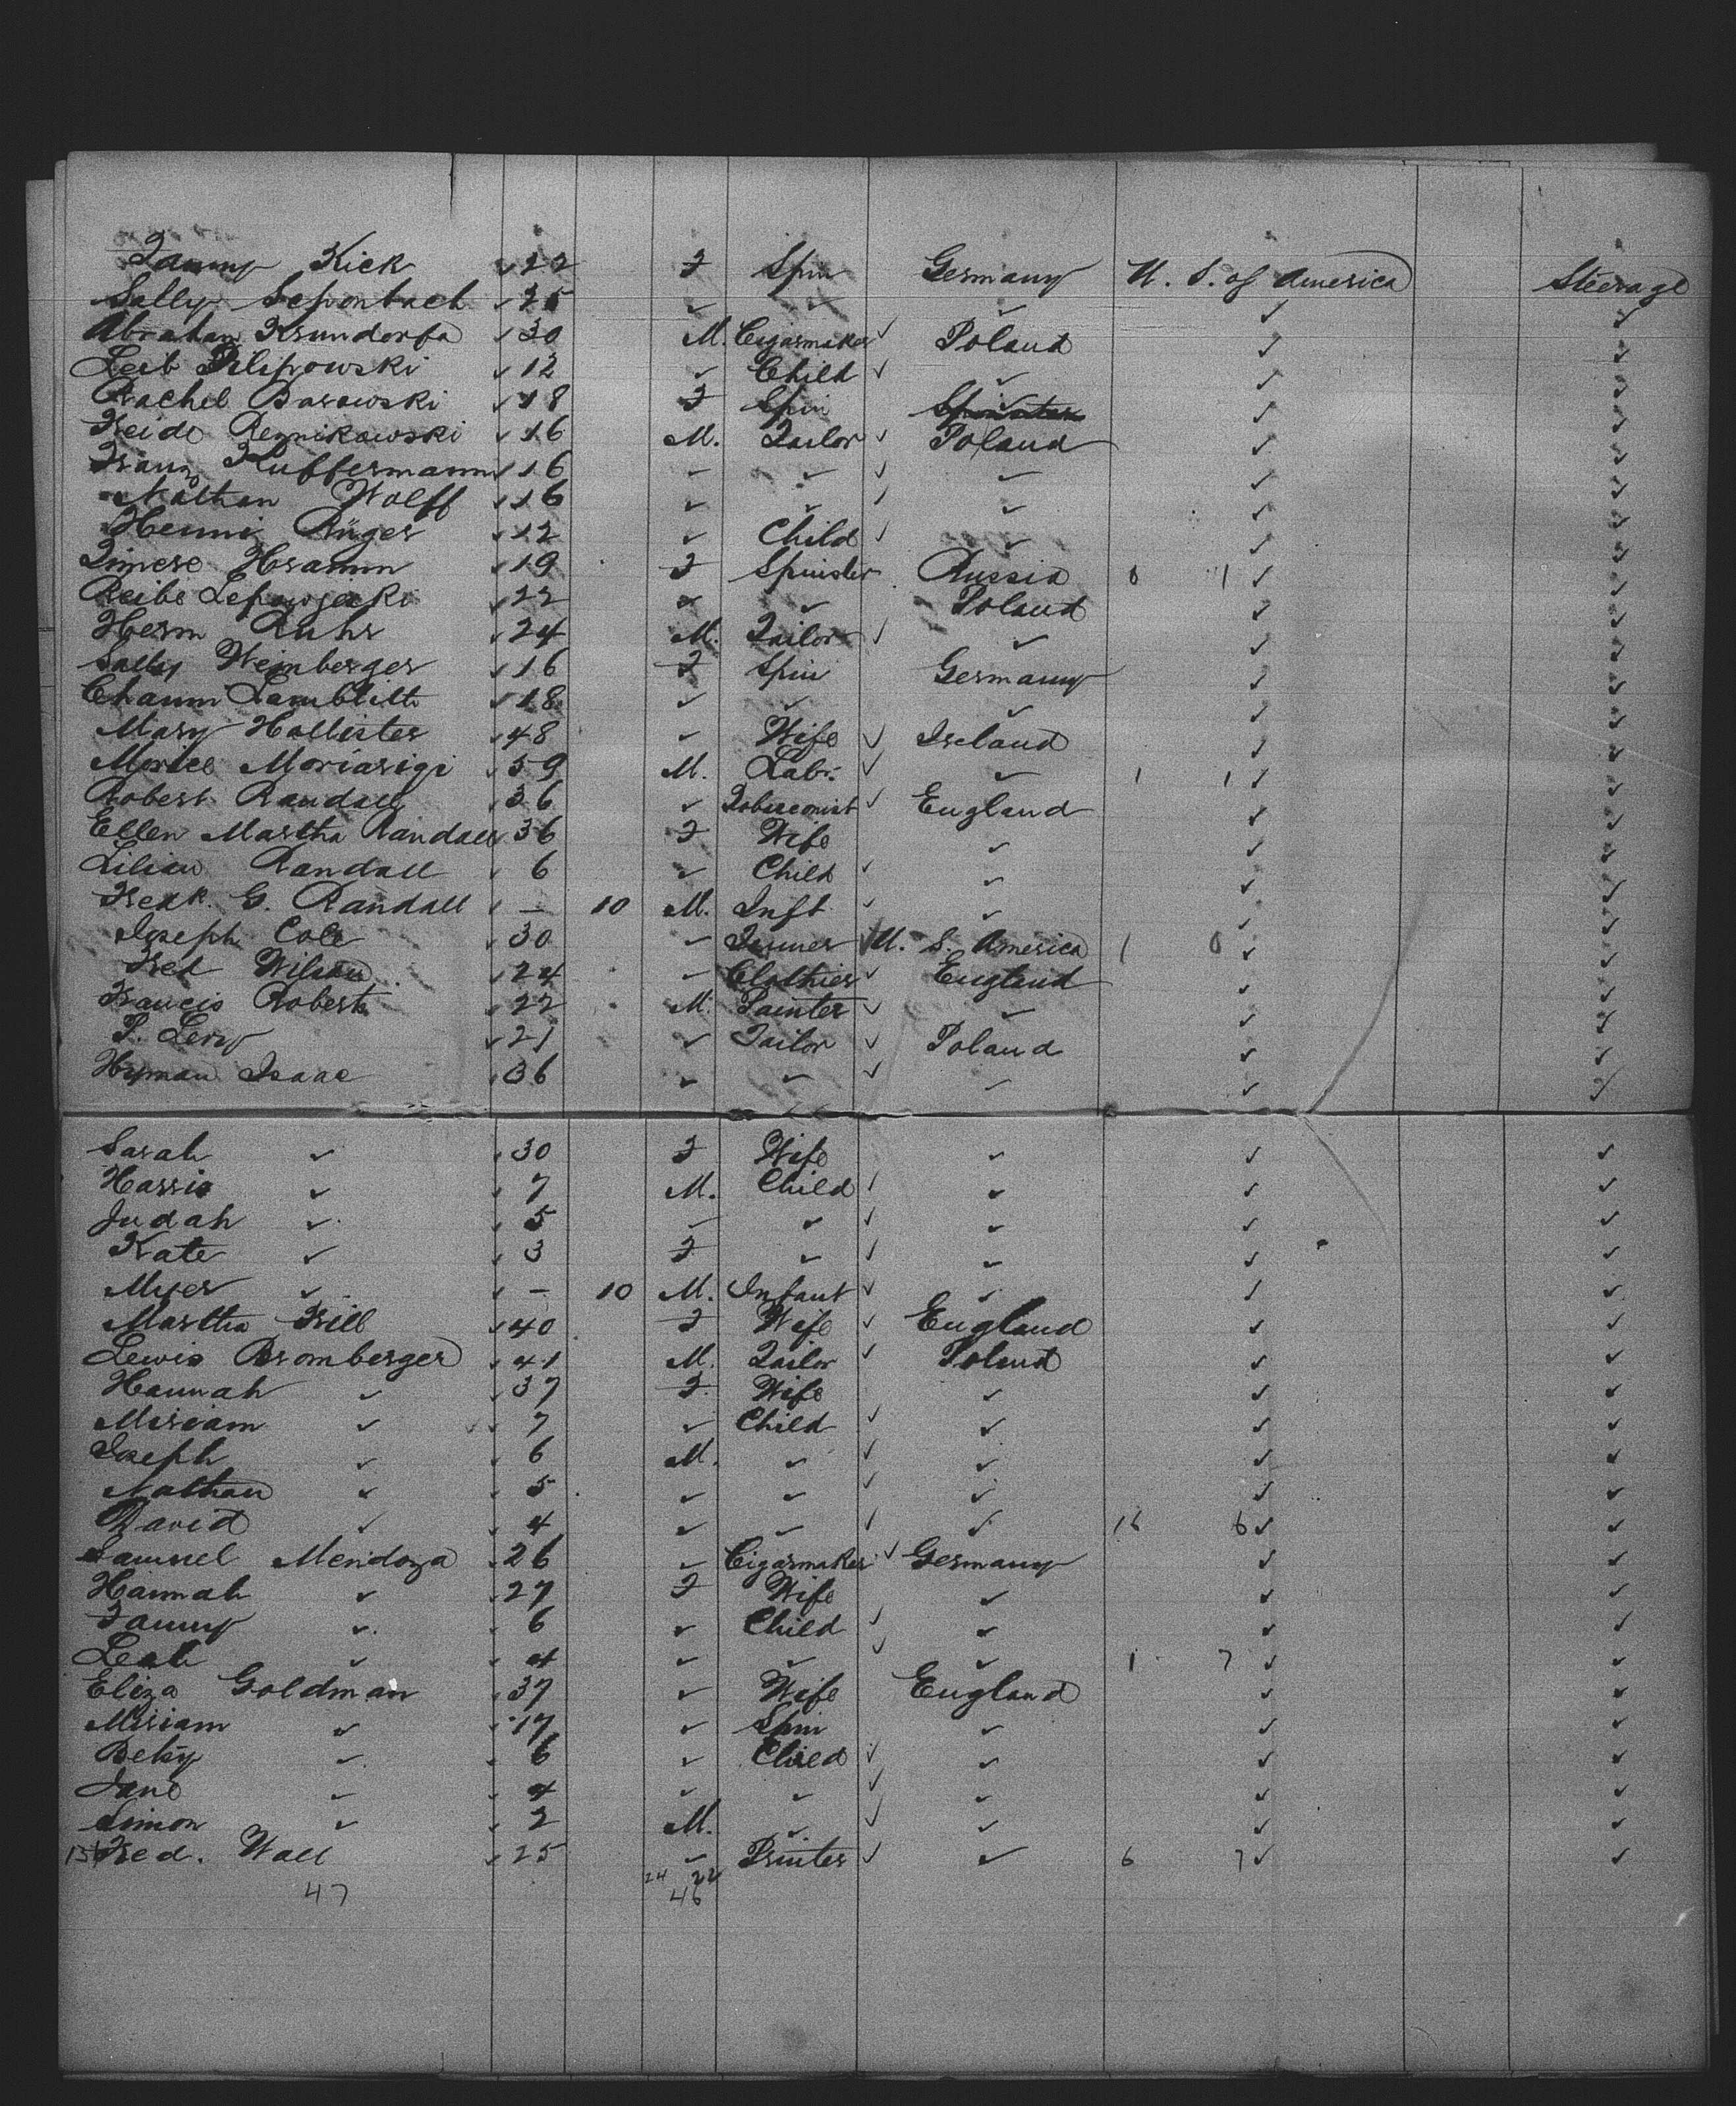 Fanny Kick ✓ 22 F Spin Germany U. S. of America Steerage
Sally ✓ 25 ✓ ✓ ✓ ✓ ✓
Abraham ✓ 30 M. Cigarmaker ✓ Poland ✓ ✓
Leib Filipowski ✓ 12 ✓ Child ✓ ✓ ✓ ✓
Rachel Barowski ✓ 18 F Spin ✓ ✓ ✓
Reznikowski ✓ 16 M. Tailor ✓ Poland ✓ ✓
Franz Kuffermann ✓ 16 ✓ ✓ ✓ ✓ ✓ ✓
Nathan Wolff ✓ 16 ✓ ✓ ✓ ✓ ✓ ✓
Henni Rüger ✓ 12 ✓ Child ✓ ✓ ✓ ✓
Hramm ✓ 19 F Spinster Russia 0 1 ✓ ✓
Reibe ✓ 22 ✓ ✓ Poland ✓ ✓
Herm Ruhr ✓ 24 M. Tailor ✓ ✓ ✓ ✓
Sally Weinberger ✓ 16 F Spin Germany ✓ ✓
✓ 18 ✓ ✓ ✓ ✓ ✓
Mary Hollister ✓ 48 ✓ Wife ✓ Ireland ✓ ✓
Moriarigi ✓ 59 M. Labr. ✓ ✓ 1 1 ✓ ✓
Robert Randall ✓ 36 ✓ Tobacconist ✓ England ✓ ✓
Ellen Martha Randall ✓ 36 F Wife ✓ ✓ ✓
Lilian Randall ✓ 6 ✓ Child ✓ ✓ ✓ ✓
Fredk. G. Randall ✓ — 10 M. Inft ✓ ✓ ✓ ✓
Joseph Cole ✓ 30 ✓ ✓ U. S. America 1 0 ✓ ✓
Fred Wilson ✓ 24 ✓ Clothier ✓ England ✓ ✓
Francis Robert ✓ 22 M. Painter ✓ ✓ ✓ ✓
P. Levy ✓ 21 ✓ Tailor ✓ Poland ✓ ✓
Hyman Isaac ✓ 36 ✓ ✓ ✓ ✓ ✓ ✓
Sarah ✓ ✓ 30 F Wife ✓ ✓ ✓
Harris ✓ ✓ 7 M. Child ✓ ✓ ✓ ✓
Judah ✓ ✓ 5 ✓ ✓ ✓ ✓ ✓ ✓
Kate ✓ ✓ 3 F ✓ ✓ ✓ ✓ ✓
Myer ✓ ✓ — 10 M. Infant ✓ ✓ ✓ ✓
Martha ✓ 40 F Wife ✓ England ✓ ✓
Lewis Bromberger ✓ 41 M. Tailor ✓ Poland ✓ ✓
Hannah ✓ ✓ 37 F. Wife ✓ ✓ ✓
Miriam ✓ ✓ 7 ✓ Child ✓ ✓ ✓ ✓
Joseph ✓ ✓ 6 M. ✓ ✓ ✓ ✓ ✓
Nathan ✓ ✓ 5 ✓ ✓ ✓ ✓ ✓ ✓
David ✓ ✓ 4 ✓ ✓ ✓ ✓ 16 6 ✓ ✓
Samuel Mendoza ✓ 26 ✓ Cigarmaker ✓ Germany ✓ ✓
Hannah ✓ ✓ 27 F Wife ✓ ✓ ✓
Fanny ✓ ✓ 6 ✓ Child ✓ ✓ ✓ ✓
Leah ✓ ✓ 4 ✓ ✓ ✓ ✓ 1 7 ✓ ✓
Eliza Goldman ✓ 37 ✓ Wife England ✓ ✓
Miriam ✓ ✓ 17 ✓ Spin ✓ ✓ ✓
Betsy ✓ ✓ 6 ✓ Child ✓ ✓ ✓ ✓
Jane ✓ ✓ 4 ✓ ✓ ✓ ✓ ✓ ✓
Simon ✓ ✓ 2 M. ✓ ✓ ✓ ✓ ✓
Fred. Wall ✓ 25 ✓ Printer ✓ ✓ 6 7 ✓ ✓
24 22
47 46